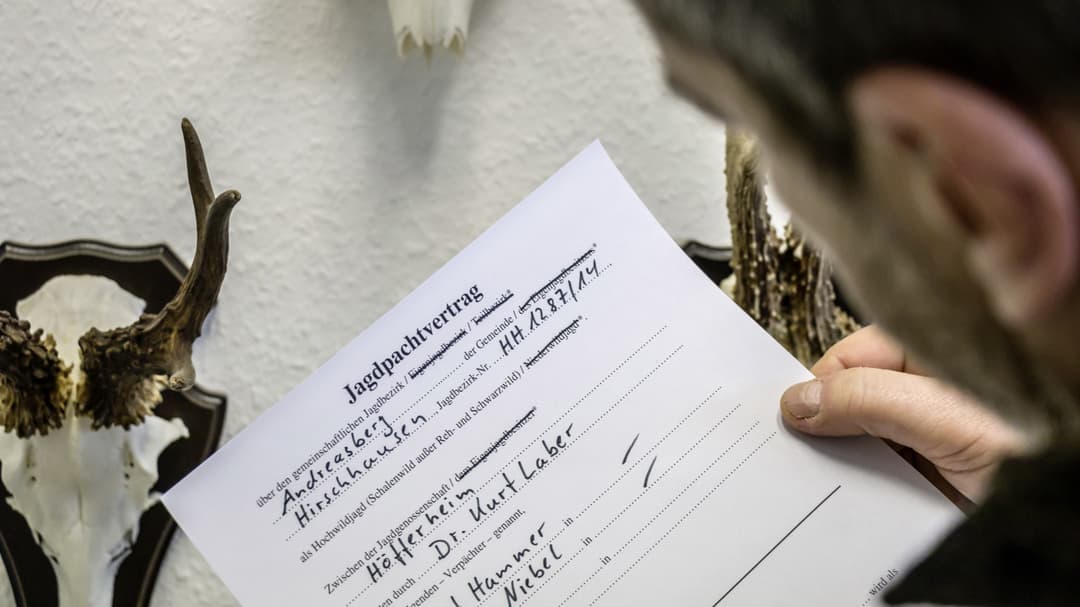 Jagdpachtvertrag
über den gemeinschaftlichen Jagdbezirk / Eigenjagdbezirk / Teilbezirk*
Andreasberg der Gemeinde / des Eigenjagdbesitzes*
Hirschhausen Jagdbezirk Nr. HH 12.87/14
als Hochwildjagd (Schalenwild außer Reh- und Schwarzwild) / Niederwildjagd*
Zwischen der Jagdgenossenschaft / dem Eigenjagdbesitzer*
Höfferheim
den durch Dr. Kurt Laber
genden – Verpächter – genannt,
Hammer in
Niebel in
in
wird als